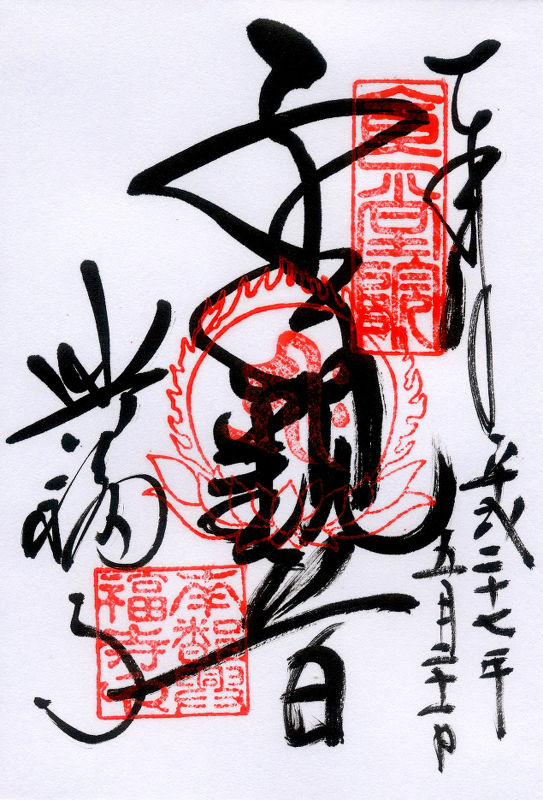 奉拝
平成二十七年
五月二十一日
食堂院
千手観音
興福寺
南都興
福寺印